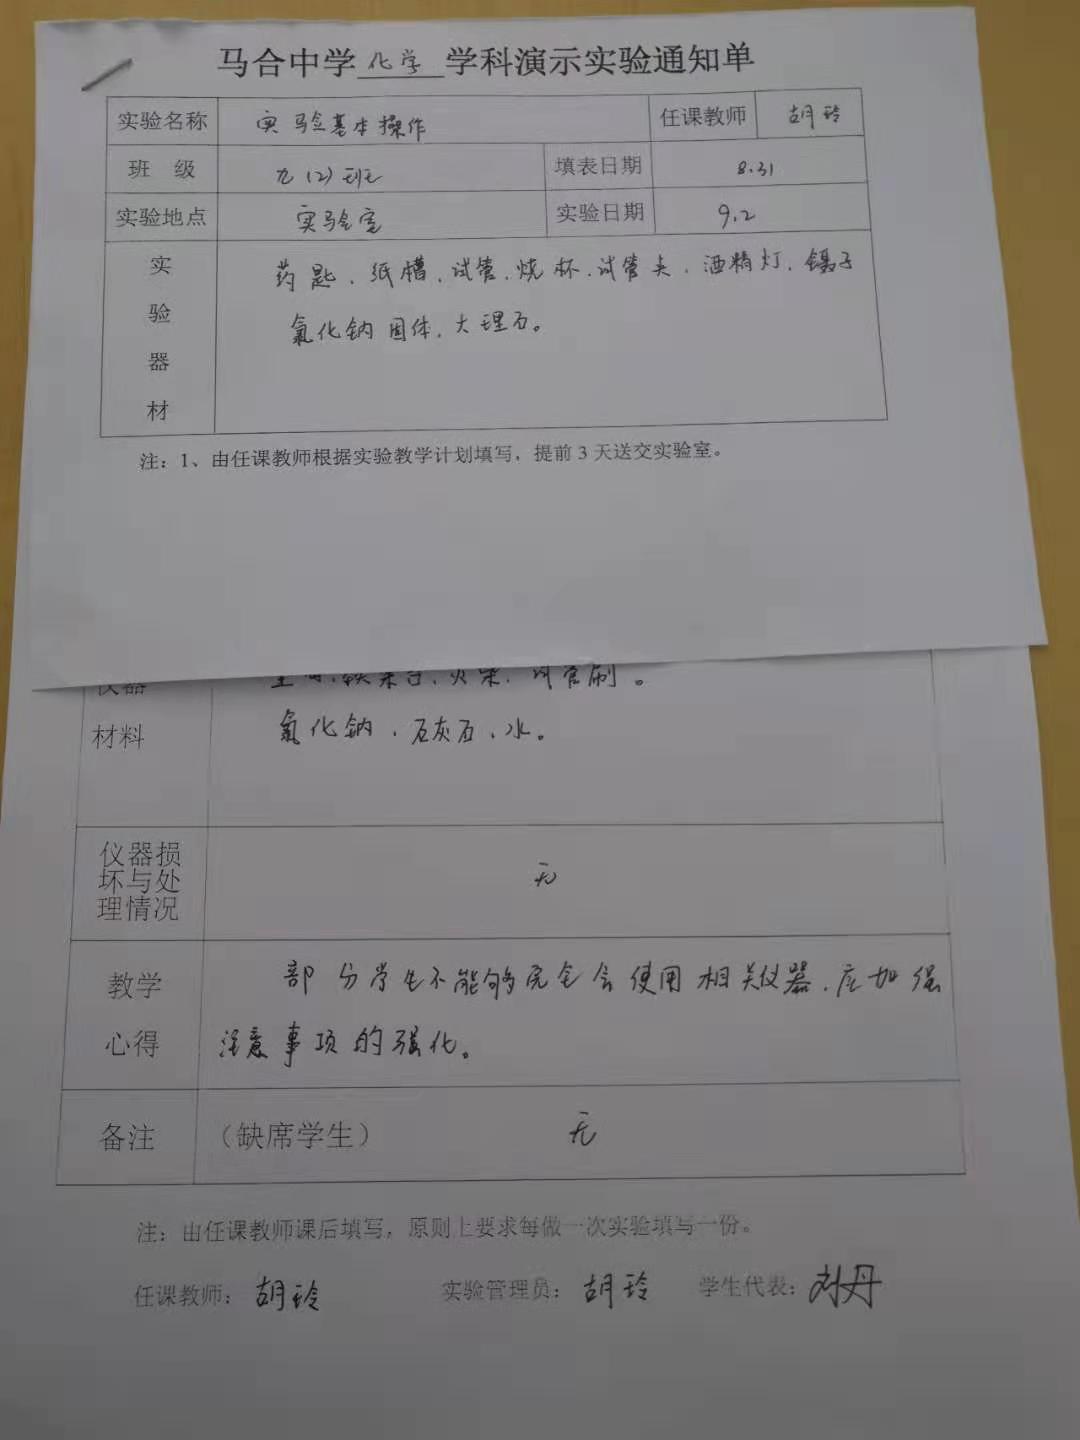 马合中学 化学 学科演示实验通知单
实验名称 实验基本操作 任课教师 胡玲
班 级 九(2)班 填表日期 8.31
实验地点 实验室 实验日期 9.2
实验器材 药匙、纸槽、试管、烧杯、试管夹、酒精灯、镊子
氯化钠固体、大理石。
注：1、由任课教师根据实验教学计划填写，提前3天送交实验室。
仪器 铁架台、火柴、试管刷。
材料 氯化钠、石灰石、水。
仪器损
坏与处 无
理情况
教学 部分学生不能够完全会使用相关仪器，应加强
心得 注意事项的强化。
备注 （缺席学生） 无
注：由任课教师课后填写，原则上要求每做一次实验填写一份。
任课教师：胡玲 实验管理员：胡玲 学生代表：刘丹